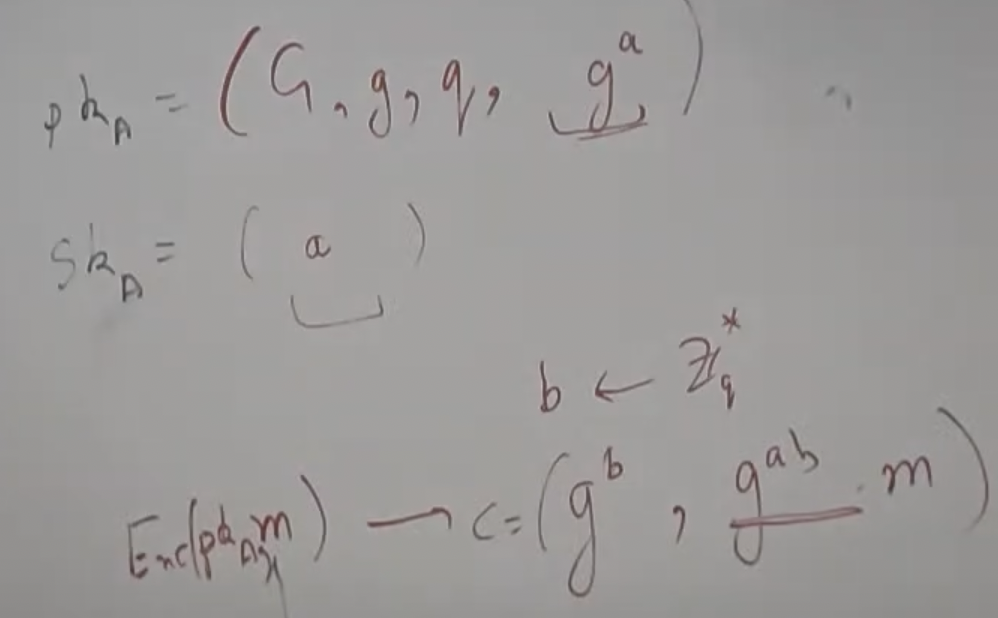 pk_A = (G, g, q, g^a)
sk_A = (a)
b ← Z_q^*
Enc(pk_A, m) — c = (g^b, g^{ab} · m)